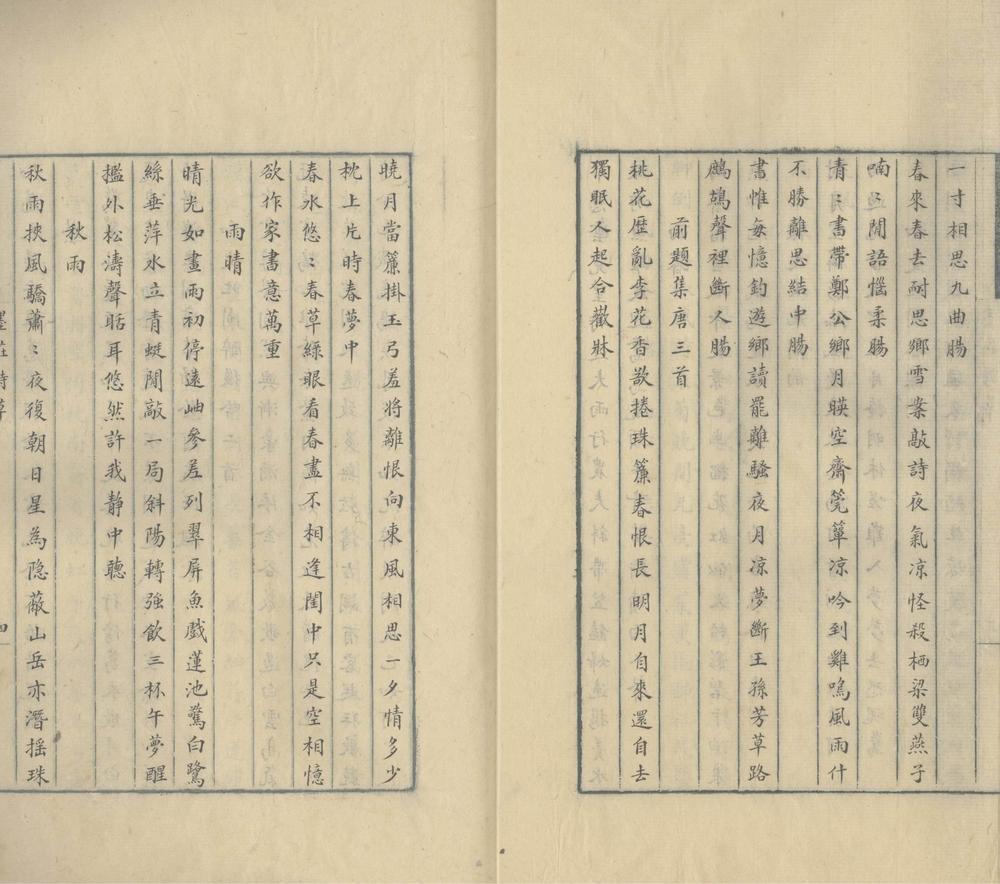 一寸相思九曲腸
春來春去耐思鄉雪案敲詩夜氣凉怪殺栖梁雙燕子
喃〻閒語惱柔腸
青〻書帶鄭公鄉月暎空齋筦簟凉吟到雞鳴風雨什
不勝離思結中腸
書惟每憶釣遊鄉讀罷離騷夜月凉夢斷王孫芳草路
鷓鴣聲裡斷人腸
前題集唐三首
桃花歷亂李花香欲捲珠簾春恨長明月自來還自去
獨眠人起合歡牀
曉月當簾掛玉弓羞將離恨向東風相思一夕情多少
枕上片時春夢中
春水悠〻春草綠眼看春盡不相逢閨中只是空相憶
欲作家書意萬重
雨晴
晴光如畫雨初停遠岫參差列翠屏魚戲蓮池驚白鷺
絲垂萍水立青蜓閒敲一局斜陽轉強飲三杯午夢醒
檻外松濤聲聒耳悠然許我靜中聽
秋雨
秋雨挾風驕蕭〻夜復朝日星為隐蔽山岳亦潛摇珠